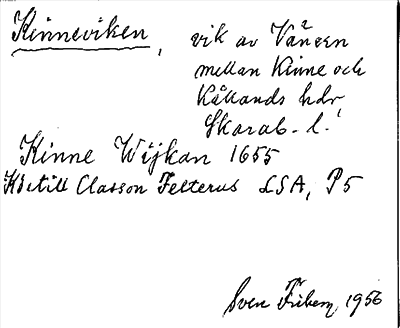 Kinneviken, vik av Vänern
mellan Kinne och
Kållands hdr,
Skarab. l.
Kinne Wijkan 1655
Kietill Classon Felterus LSA, P5
Sven 1956